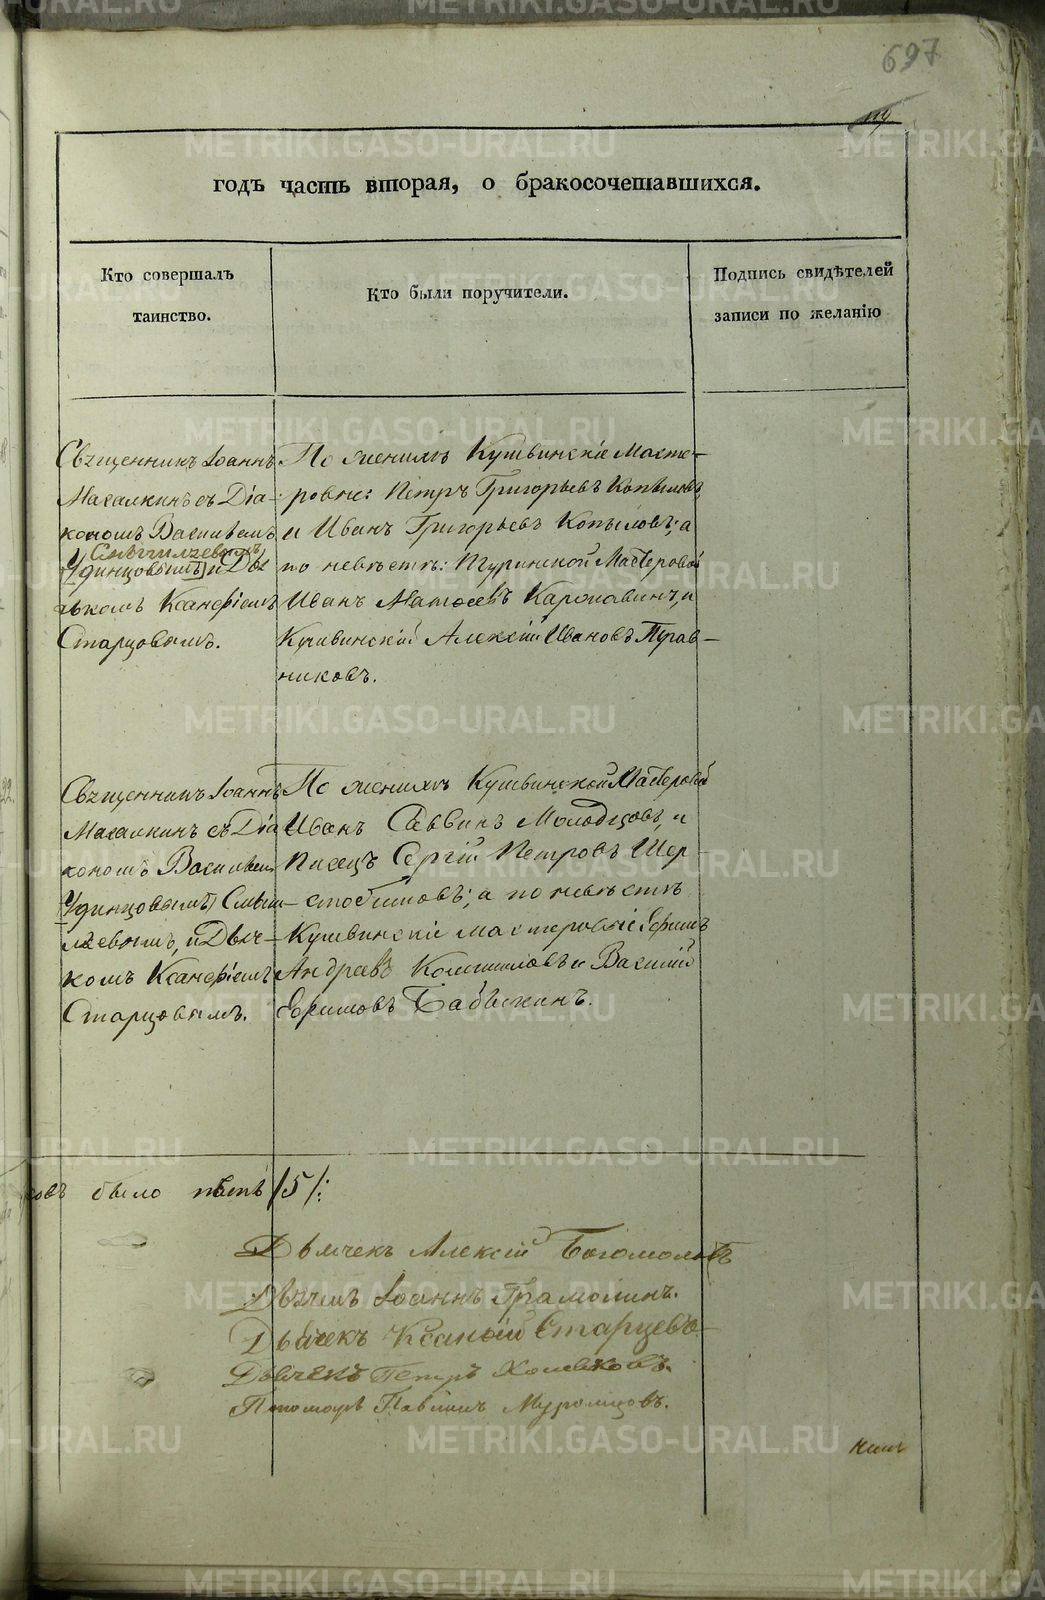 697
114
годъ часть вторая, о бракосочетавшихся.
Кто совершалъ
таинство.
Кто были поручители.
Подпись свидѣтелей
записи по желанію
Священникъ Іоаннъ
Магалкинъ съ Діа-
кономъ Васильемъ
Удинцовымъ и Дья-
чкомъ Ксанфіемъ
Старцовымъ.
По женихѣ Кушвинскіе Масте-
ровые: Петръ Григорьевъ Копыловъ
и Иванъ Григорьевъ Копыловъ; а
по невѣстѣ: Туринской Мастеровой
Иванъ Матвеевъ и
Кушвинскій Алексій Ивановъ
никовъ.
Священникъ Іоаннъ
Магалкинъ съ Діа
кономъ Васильем
Удинцовымъ
и Дьяч-
комъ Ксанфіемъ
Старцовымъ.
По женихѣ Кушвинской Мастеровой
Иванъ Саввинъ Молодцовъ, и
Писецъ Сергій Петровъ Шер-
стобитовъ; а по невѣстѣ
Кушвинскіе мастеровые Ефимъ
Андреевъ и Василій
Ефимовъ Бабкинъ.
овъ было пять /5/:
Дьячекъ Алексій Богомоловъ
Дьячекъ Іоаннъ Грамолинъ.
Дьячекъ Ксанфій Старцевъ
Дьячекъ Петръ Хомяковъ.
Пономарь Павлинъ Муромцовъ.
METRIKI.GASO-URAL.RU